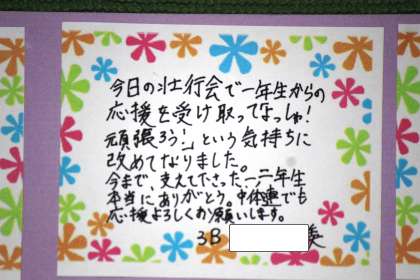 今日の壮行会で一年生からの
応援を受け取って「よっしゃ!
頑張ろう!」という気持ちに
改めてなりました。
今まで、支えて下さった一、二年生
本当にありがとう。中体連でも
応援よろしくお願いします。
3B 美